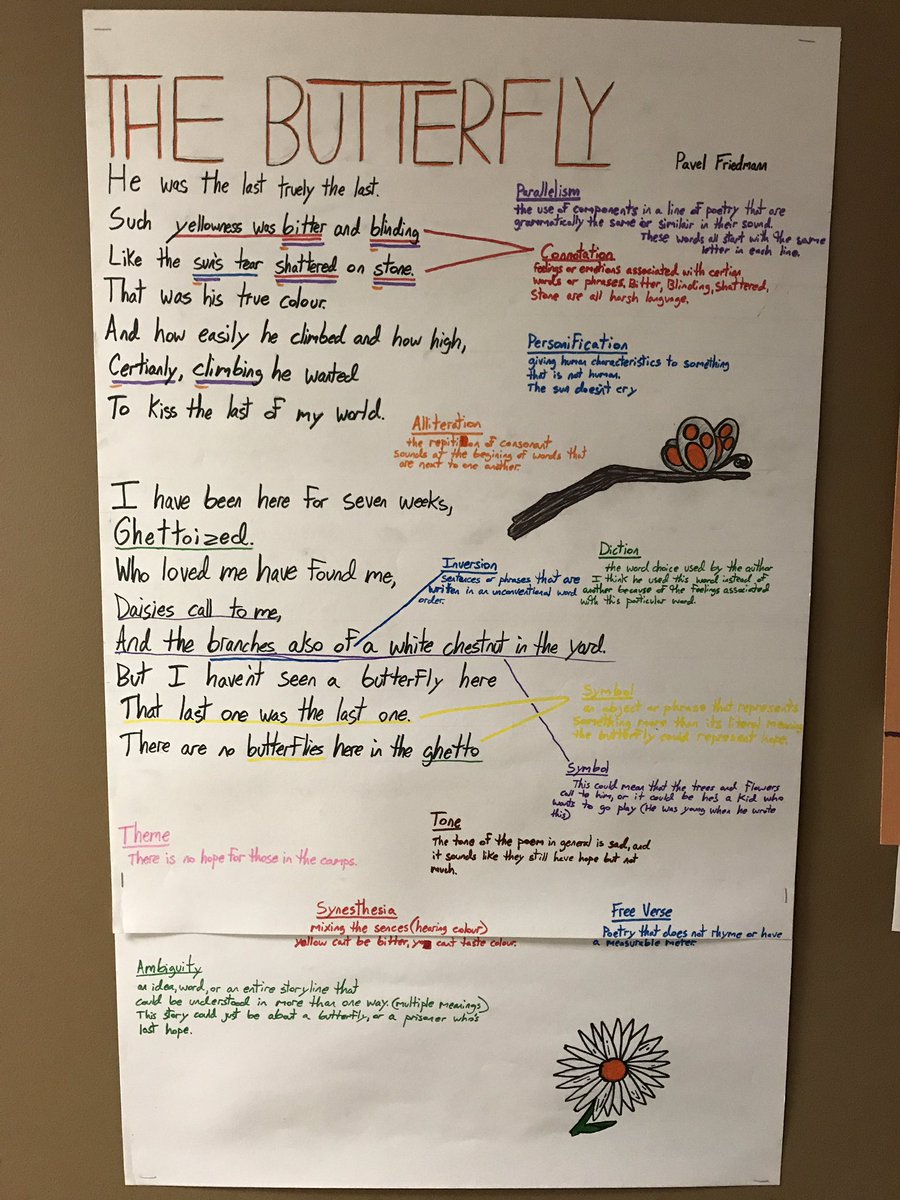 THE BUTTERFLY
Pavel Friedmann
He was the last truely the last.
Such yellowness was bitter and blinding
Like the sun's tear shattered on stone.
That was his true colour.
And how easily he climbed and how high,
Certianly, climbing he wanted
To kiss the last of my world.
Parallelism
the use of components in a line of poetry that are
grammatically the same or similair in their sound.
These words all start with the same
letter in each line.
Connotation
feelings or emotions associated with certian
words or phrases. Bitter, Blinding, Shattered,
Stone are all harsh language.
Personification
giving human characteristics to something
that is not human.
The sun doesn't cry
Alliteration
the repitition of consonant
sounds at the begining of words that
are next to one another.
I have been here for seven weeks,
Ghettoized.
Who loved me have found me,
Daisies call to me,
And the branches also of a white chestnut in the yard.
But I haven't seen a butterfly here
That last one was the last one.
There are no butterflies here in the ghetto
Inversion
sentences or phrases that are
written in an unconventional word
order.
Diction
the word choice used by the author
I think he used this word instead of
another because of the feelings associated
with this particular word.
Symbol
an object or phrase that represents
something more than its literal meaning
the butterfly could represent hope.
Symbol
This could mean that the trees and flowers
call to him, or it could be he's a kid who
wants to go play (He was young when he wrote
this)
Theme
There is no hope for those in the camps.
Tone
The tone of the poem in general is sad, and
it sounds like they still have hope but not
much.
Synesthesia
mixing the sences (hearing colour)
yellow cant be bitter, you cant taste colour.
Free Verse
Poetry that does not rhyme or have
a measurable meter.
Ambiguity
an idea, word, or an entire storyline that
could be understood in more than one way. (multiple meanings)
This story could just be about a butterfly, or a prisoner who's
lost hope.